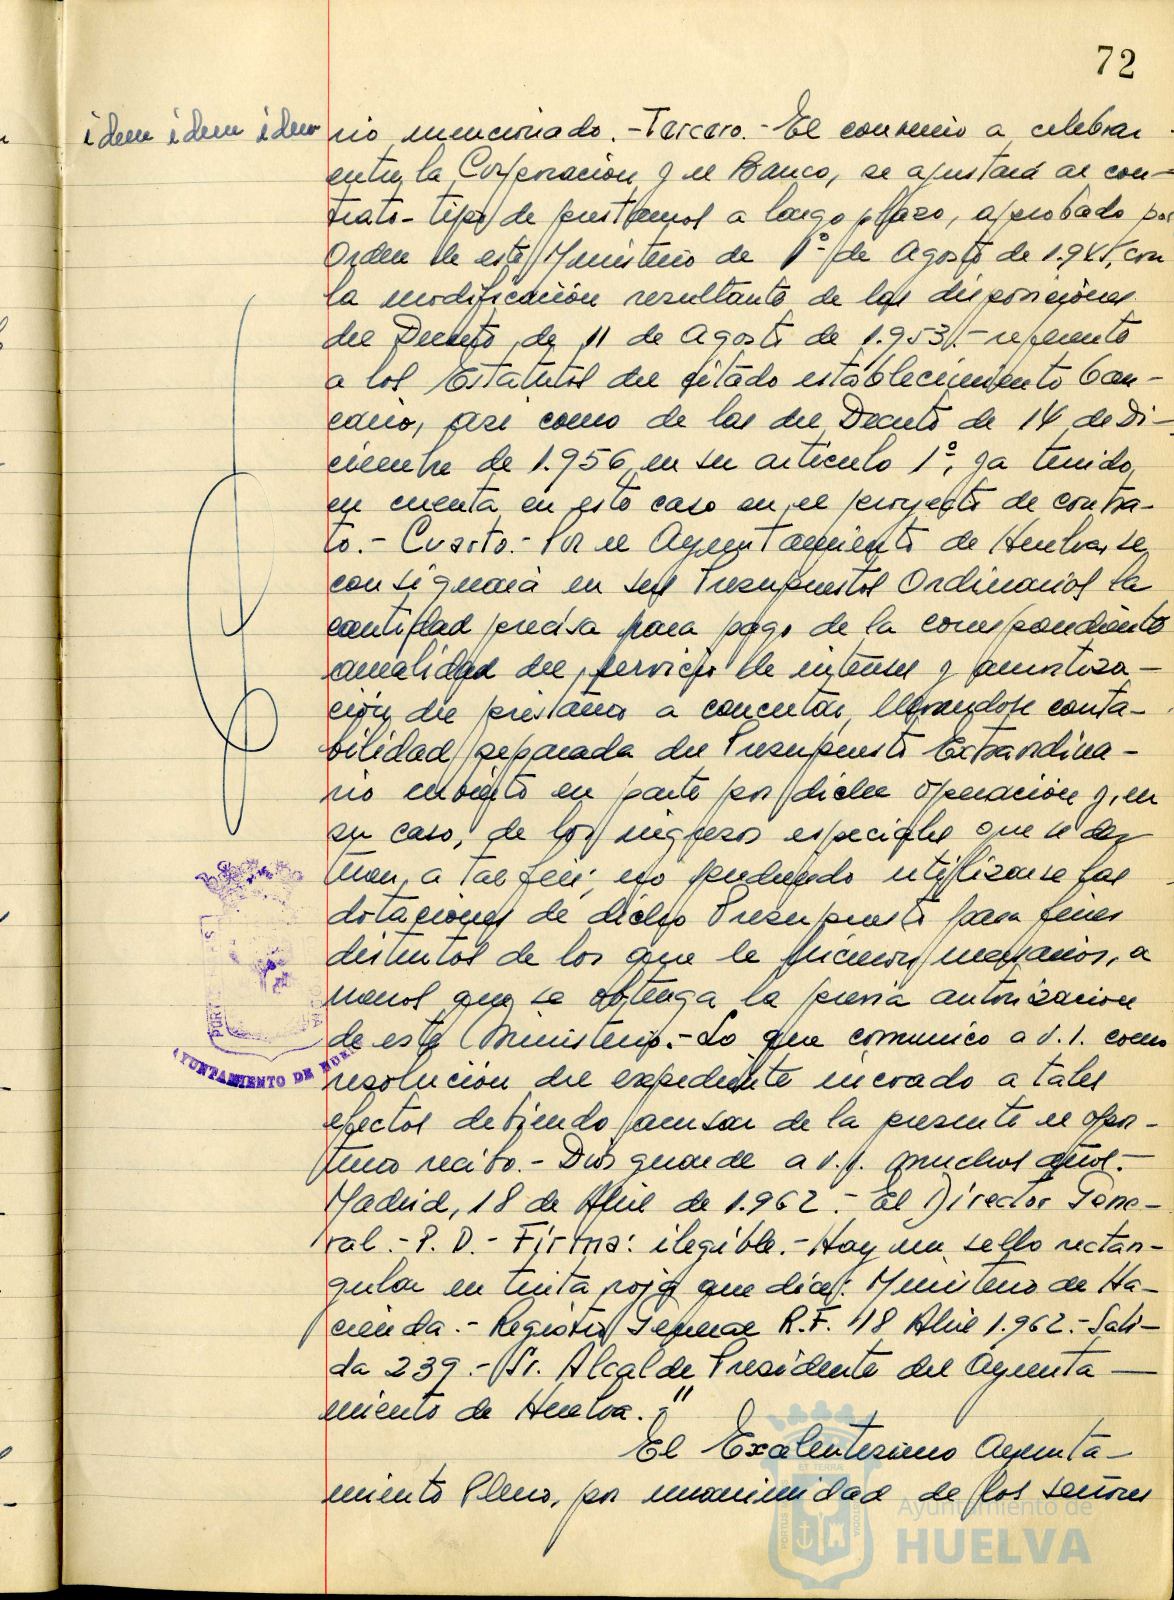 72
idem idem idem
rio mencionado.-Tercero.- El convenio a celebrar
entre la Corporación y el Banco, se ajustará al con-
trato-tipo de prestamos a largo plazo, aprobado por
Orden de este Ministerio de 1º de Agosto de con
la modificación resultante de las disposiciones
del Decreto de 11 de Agosto de 1.953.- referente
a los Estatutos del citado establecimiento ban-
cario, asi como de las del Decreto de 14 de Di-
ciembre de 1.956, en su articulo 1º, ya tenido
en cuenta en este caso en el proyecto de contra-
to.- Cuarto.- Por el Ayuntamiento de Huelva se
consignará en sus Presupuestos Ordinarios la
cantidad precisa para pago de la correspondiente
anualidad del servicio de interes y amortiza-
ción del préstamo a concertar, llevandose conta-
bilidad separada del Presupuesto Extraordina-
rio cubierto en parte por dicha operación y, en
su caso, de los ingresos especiales que se des-
tinen a tal fin; no pudiendo utilizarse las
dotaciones de dicho Presupuesto para fines
distintos de los que le hicieron necesarios, a
menos que se obtenga la previa autorizacion
de este Ministerio.-Lo que comunico a V.I. como
resolución del expediente incoado a tales
efectos debiendo acusar de la presente el opor-
tuno recibo.- Dios guarde a V.I. muchos años.-
Madrid, 18 de Abril de 1.962.- El Director Gene-
ral.-P. D.- Firma: ilegible.-Hay un sello rectan-
gular en tinta roja que dice: Ministerio de Ha-
cienda.- Registro General R.F. 18 Abril 1.962.-Sali-
da 239.- Sr. Alcalde Presidente del Ayunta-
miento de Huelva.-"
El Excelentisimo Ayunta-
miento Pleno, por unanimidad de los señores
AYUNTAMIENTO DE HUELVA
Ayuntamiento de
HUELVA